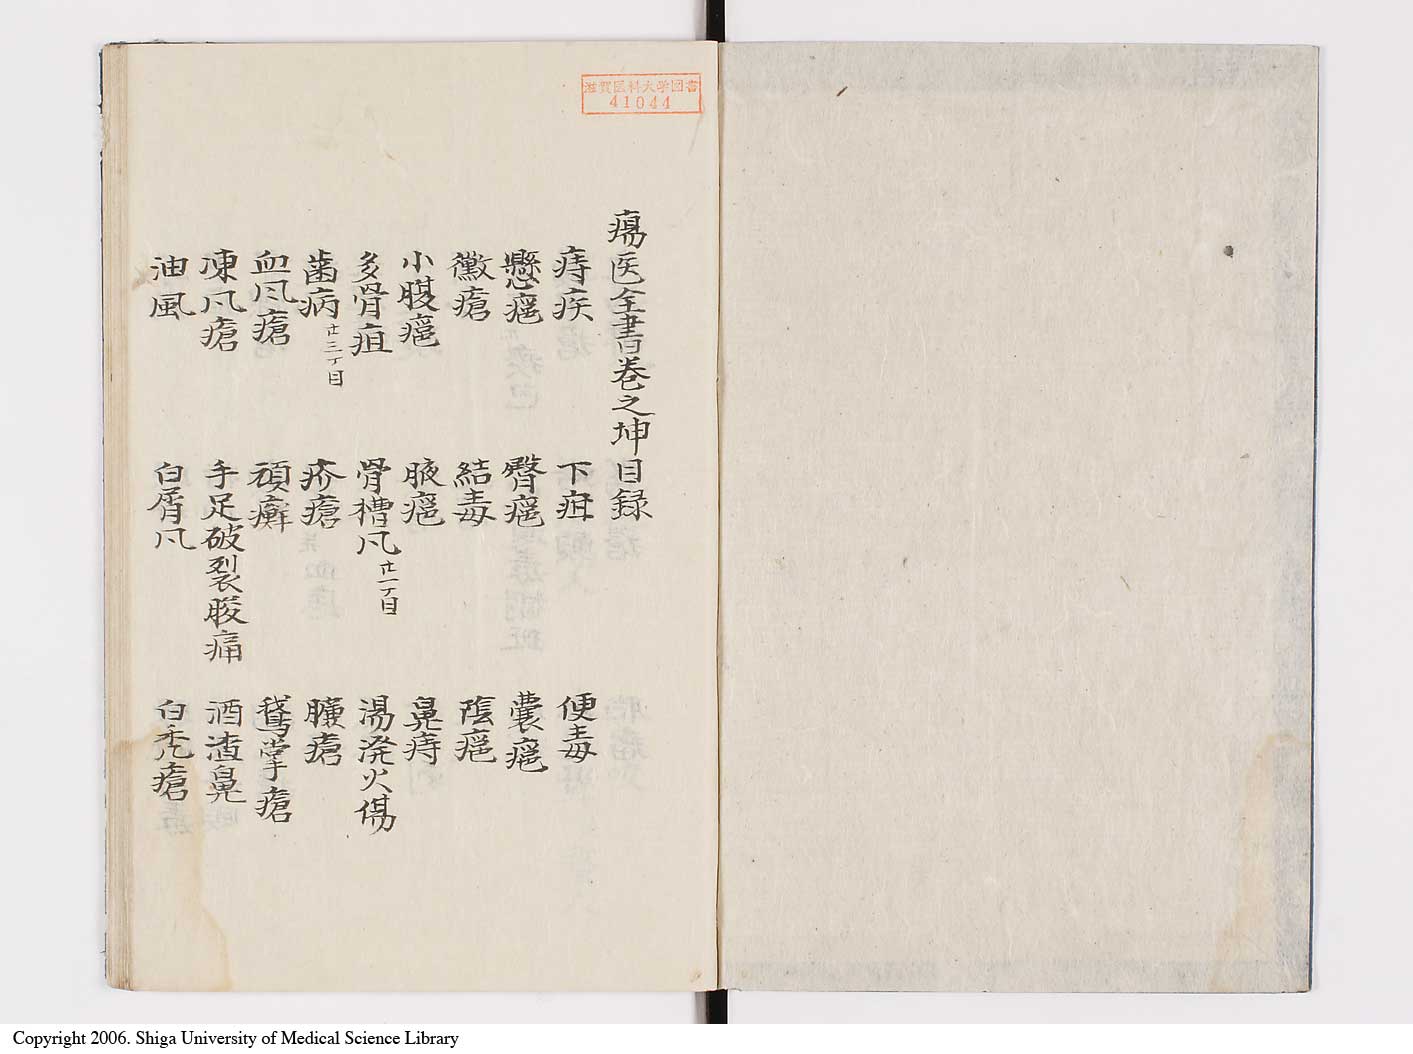 滋賀医科大学図書
41044
瘍医全書巻之坤目録
痔疾 下疳 便毒
懸癰 臀癰 囊癰
黴瘡 結毒 陰癰
小腹癰 腋癰 鼻痔
多骨疽 骨槽風廿一丁目 湯溌火傷
歯病廿三丁目 疥瘡 臁瘡
血風瘡 頑癬 鵞掌瘡
凍風瘡 手足破裂酸痛 酒渣鼻
油風 白屑風 白禿瘡
Copyright 2006. Shiga University of Medical Science Library